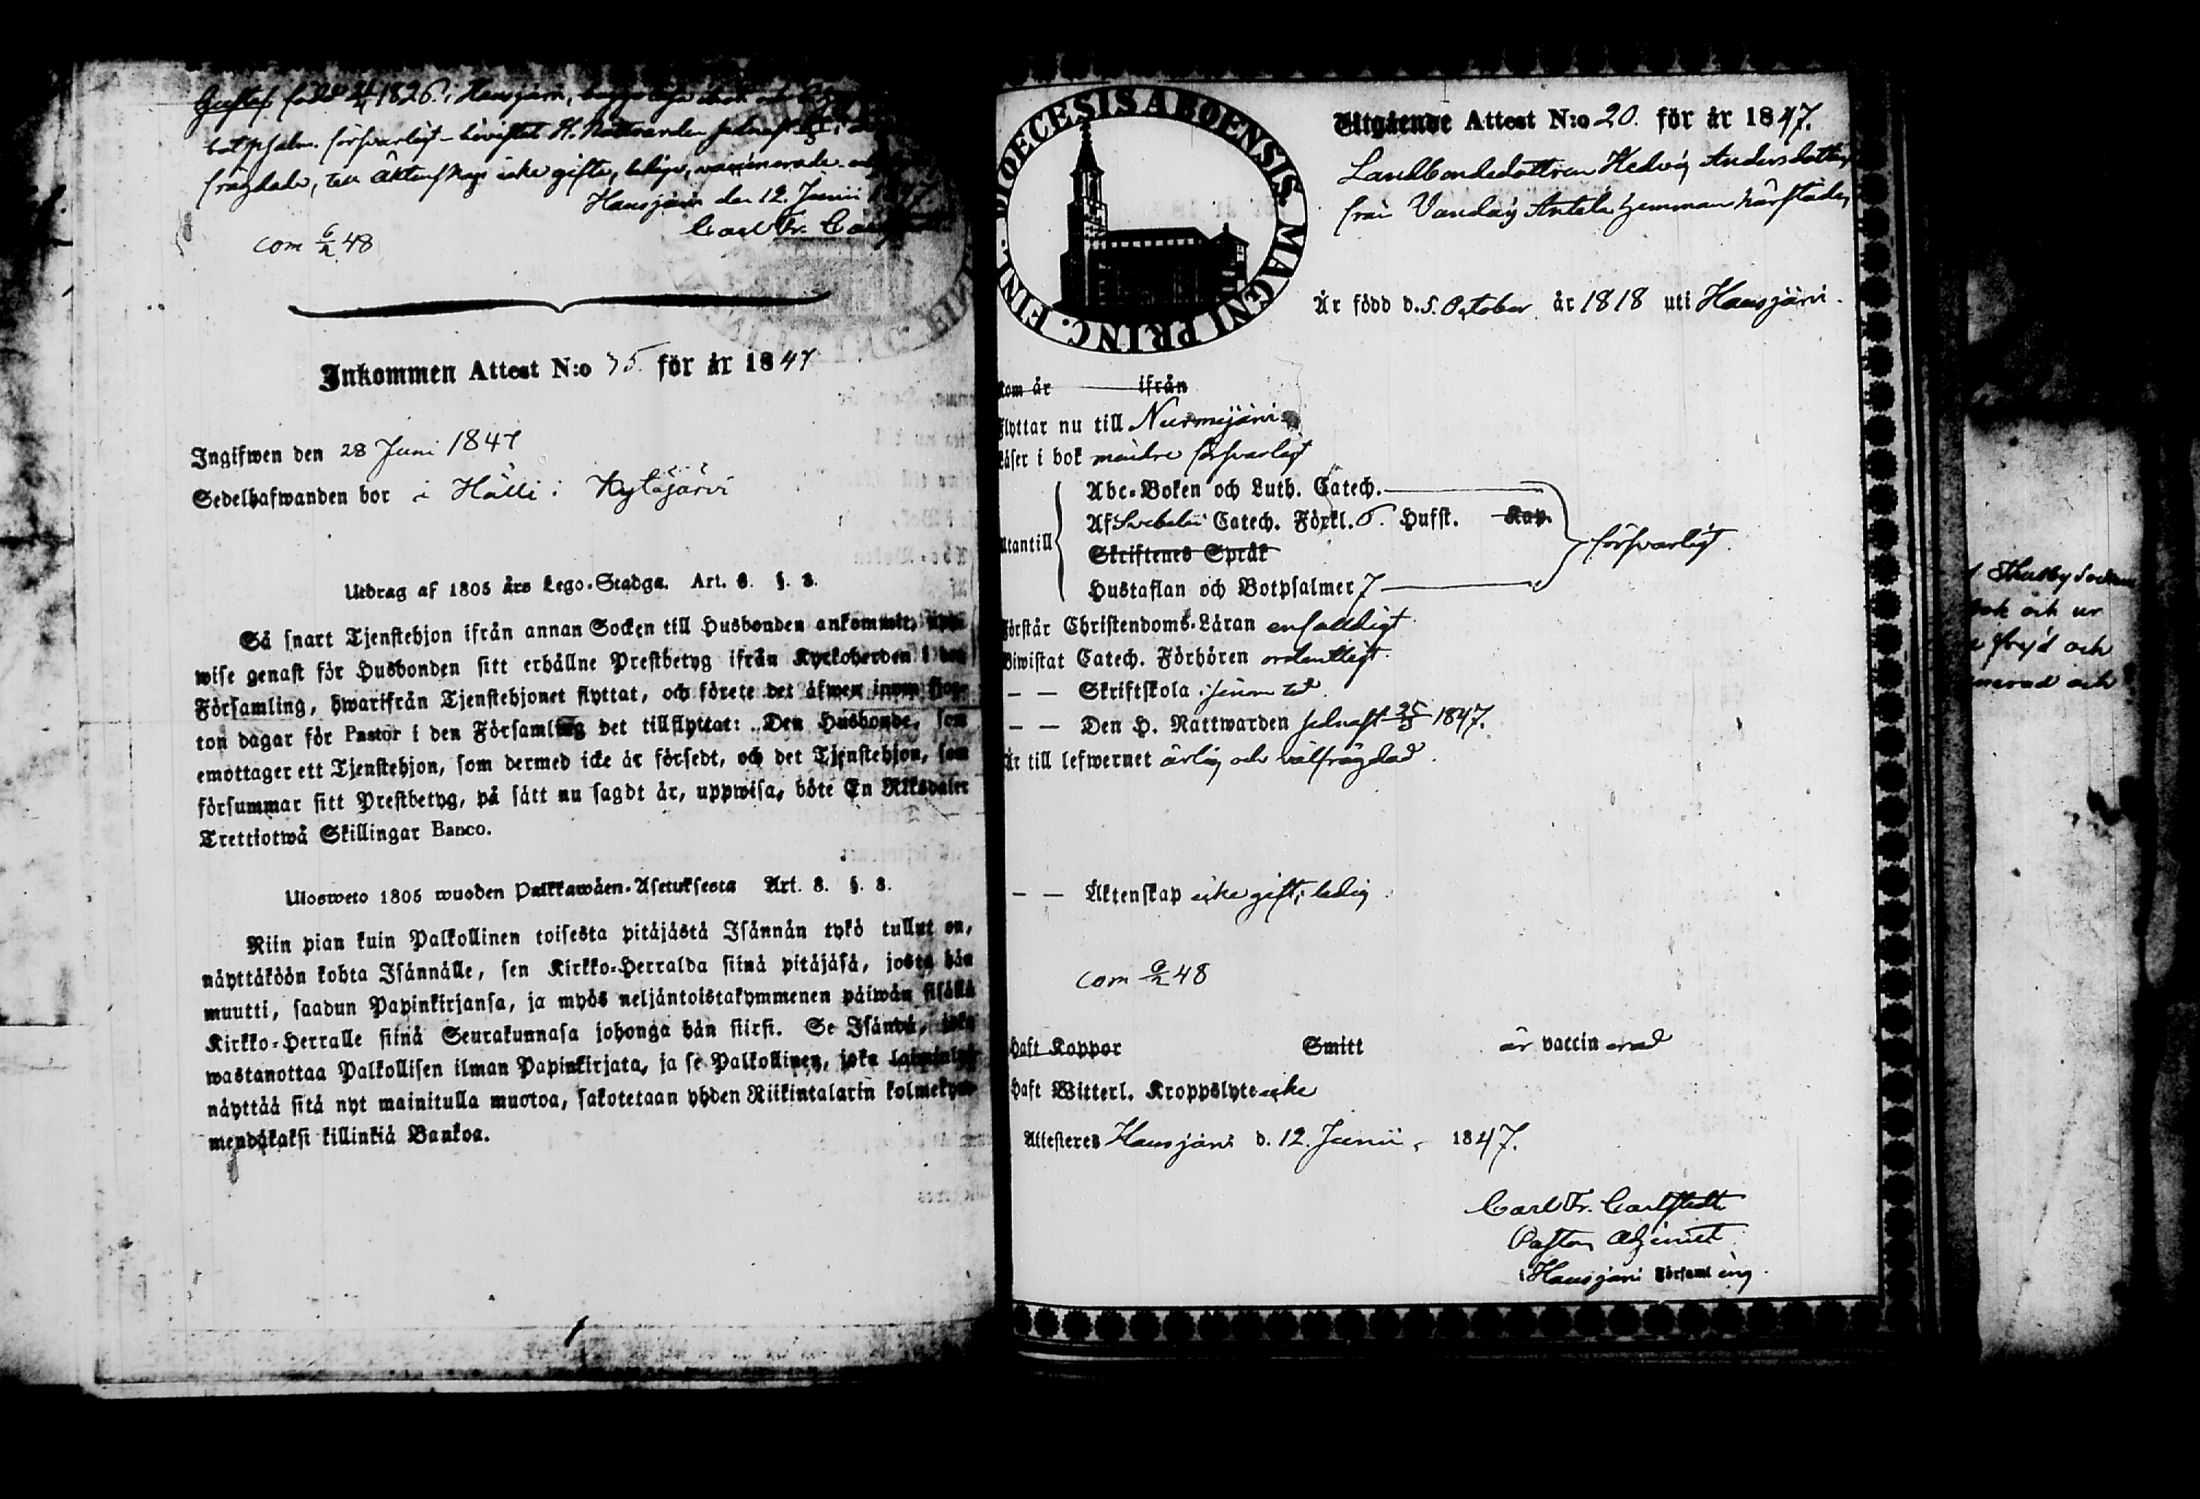 Gustaf född 1826 i Hausjärvi,
botpsalm. försvarligt bivistat H. Nattvarden sednast
frägdade, till Äktenskap icke gifte, ledige, vaccinerade
Hausjärvi den 12. Junii
Carl Fr.
com 6/2 48
Inkommen Attest N:o 75 för år 1847
Ingifwen den 28 Juni 1847
Sedelhafwanden bor i Hälli i Kytäjärvi
Utdrag af 1805 års Lego-Stadga. Art. 8. §. 8.
Så snart Tjenstehjon ifrån annan Socken till Husbonden ankommit,
wise genast för Husbonden sitt erhållne Prestbetyg ifrån Kyrkoherden i den
Församling, hwarifrån Tjenstehjonet flyttat, och förete det äfwen inom fjor-
ton dagar för Pastor i den Församling det tillflyttat: Den Husbonde, som
emottager ett Tjenstehjon, som dermed icke är försedt, och det Tjenstehjon, som
försummar sitt Prestbetyg, på sätt nu sagdt är, uppwisa, böte En Riksdaler
Trettiotwå Skillingar Banco.
Ulosweto 1805 wuoden Palkkawäen-Asetuksesta Art. 8. §. 8.
Niin pian kuin Palkollinen toisesta pitäjästä Isännän tykö tullut on,
näyttäköön kohta Isännälle, sen Kirkko-Herralda siinä pitäjäsä, josta hän
muutti, saadun Papinkirjansa, ja myös neljäntoistakymmenen päiwän sisällä
Kirkko-Herralle siinä Seurakunnasa johonga hän siirsi. Se Isändä, joka
wastanottaa Palkollisen ilman Papinkirjata, ja se Palkollinen, joka
näyttää sitä nyt mainitulla muotoa, sakotetaan yhden Riikintalarin kolmekym-
mendäkaksi killinkiä Bankoa.
DIOECESIS ABOENSIS. MAGNI PRINC. FINL.
Utgående Attest N:o 20. för år 1847.
Landbondedottren Hedvig Andersdotter
från Vandaig Antila hemman härstädes
Är född d. 5. October år 1818 uti Hausjärvi.
Kom år ifrån
Flyttar nu till Nurmijärvi
Läser i bok mindre försvarligt
Abc-Boken och Luth. Catech.
Af Svebelii Catech. Förkl. 6. Hufst. Kap.
Utantill försvarligt.
Skriftenes Språk
Hustaflan och Botpsalmer 7
Förstår Christendoms-Läran enfaldigt
Biwistat Catech. Förhören ordentligt.
— — Skriftskola i sinom tid
— — Den H. Nattwarden sednast 25/3 1847.
Är till lefwernet ärlig och välfrägdad.
— — Äktenskap icke gift; ledig.
com 9/2 48
Haft Koppor Smitt är vaccinerad
Haft Witterl. Kroppslyte icke
Attesteres Hausjärvi d. 12. Junii 1847.
Carl Fr. Carlstedt
Pastors Adjunct
i Hausjärvi Församling.
ok och ur
frejd och
nerad och